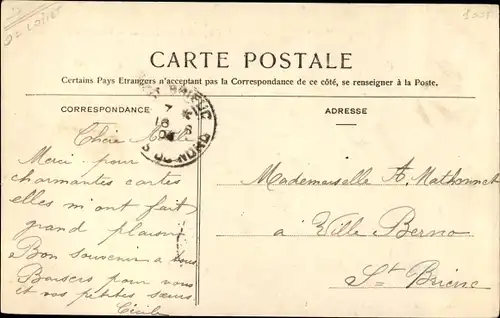 CARTE POSTALE
Certains Pays Etrangers n'acceptent pas la Correspondance de ce côté, se renseigner à la Poste.
CORRESPONDANCE
ADRESSE
ST BRIEUC
7
18 8
CÔTES DU NORD
Chère
Merci pour
charmantes cartes
elles m'ont fait
grand plaisir
Bon souvenir a tous
Baisers pour vous
et vos petites sœurs
Cécile
Mademoiselle A. Mathonnet
à Ville Berno
St Brieuc